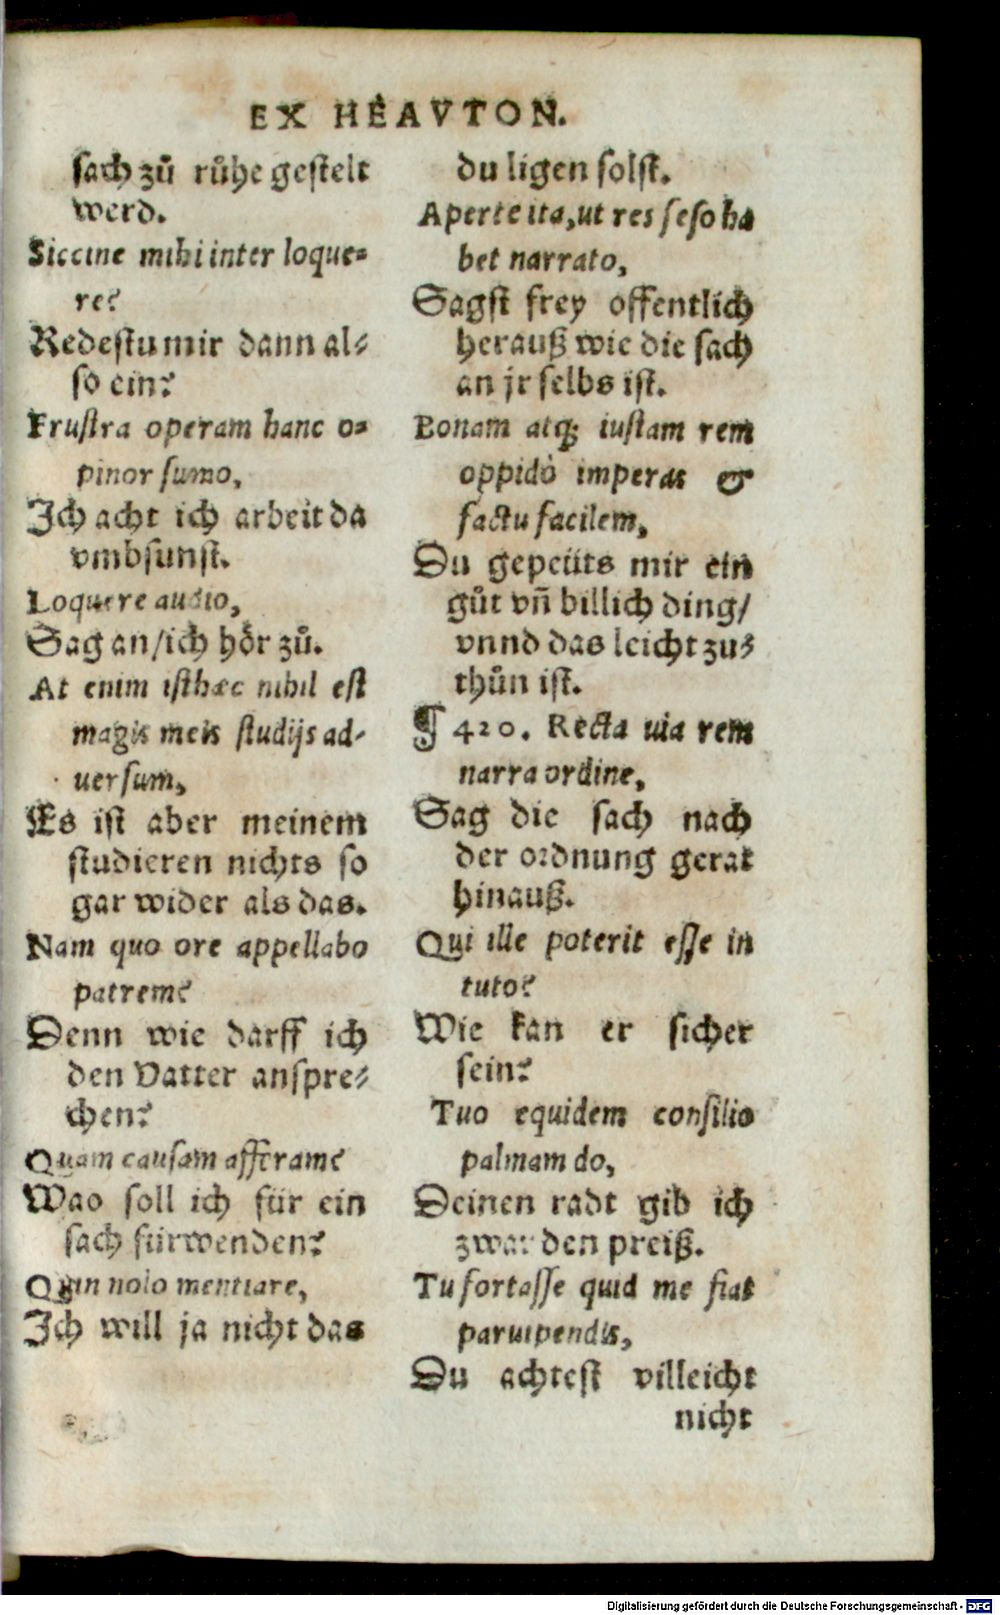 EX HEAVTON.
sach zů růhe gestelt
werd.
Siccine mihi inter loque-
re?
Redestu mir dann al-
so ein?
Frustra operam hanc o-
pinor sumo,
Ich acht ich arbeit da
vmbsunst.
Loquere audio,
Sag an/ich hör zů.
At enim isthæc nihil est
magis meis studijs ad-
uersum,
Es ist aber meinem
studieren nichts so
gar wider als das.
Nam quo ore appellabo
patrem?
Denn wie darff ich
den Vatter anspre-
chen?
Quam causam afferam?
Wao soll ich für ein
sach fürwenden?
Quin nolo mentiare,
Ich will ja nicht das
du ligen solst.
Aperte ita, ut res sese ha
bet narrato,
Sagst frey offentlich
herauß wie die sach
an jr selbs ist.
Bonam atq; iustam rem
oppidò imperas &
factu facilem,
Du gepeüts mir ein
gůt vñ billich ding/
vnnd das leicht zu-
thůn ist.
¶ 420. Recta uia rem
narra ordine,
Sag die sach nach
der ordnung gerat
hinauß.
Qui ille poterit esse in
tuto?
Wie kan er sicher
sein?
Tuo equidem consilio
palmam do,
Deinen radt gib ich
zwar den preiß.
Tu fortasse quid me fiat
paruipendis,
Du achtest villeicht
nicht
Digitalisierung gefördert durch die Deutsche Forschungsgemeinschaft - DFG